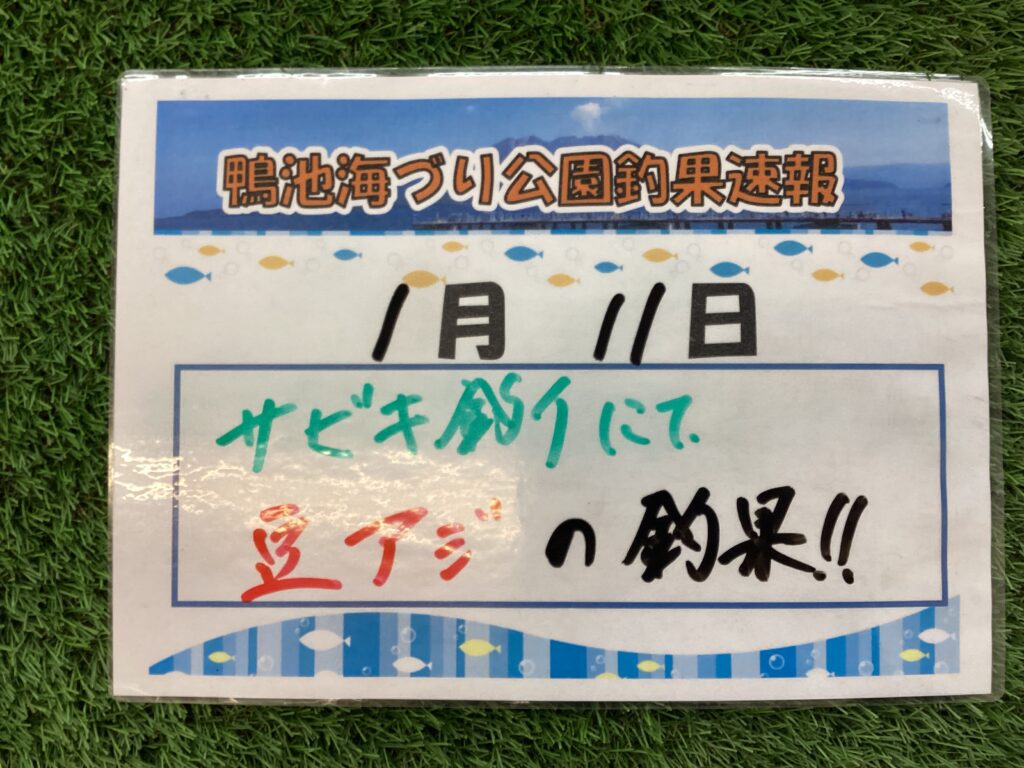 鴨池海づり公園釣果速報
1月 11日
サビキ釣りにて
豆アジの釣果!!